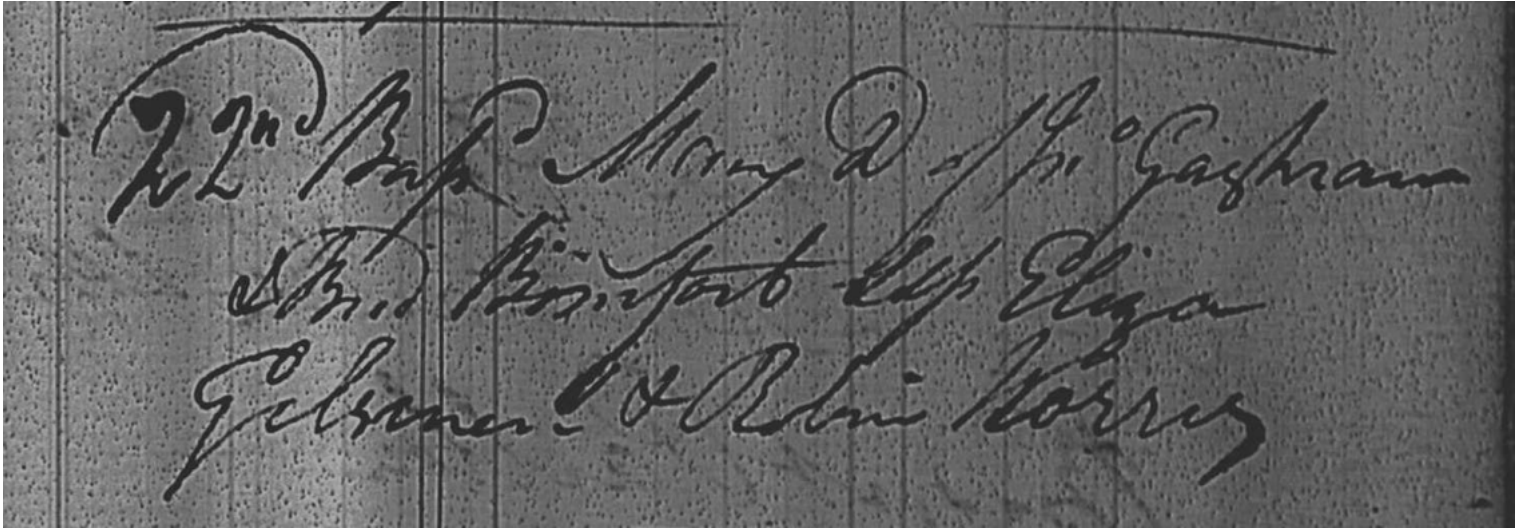 22nd Bapd Mary D of Jno Gaghran
& Bridt Bonfort Ssp Eliza
& Robin Norris